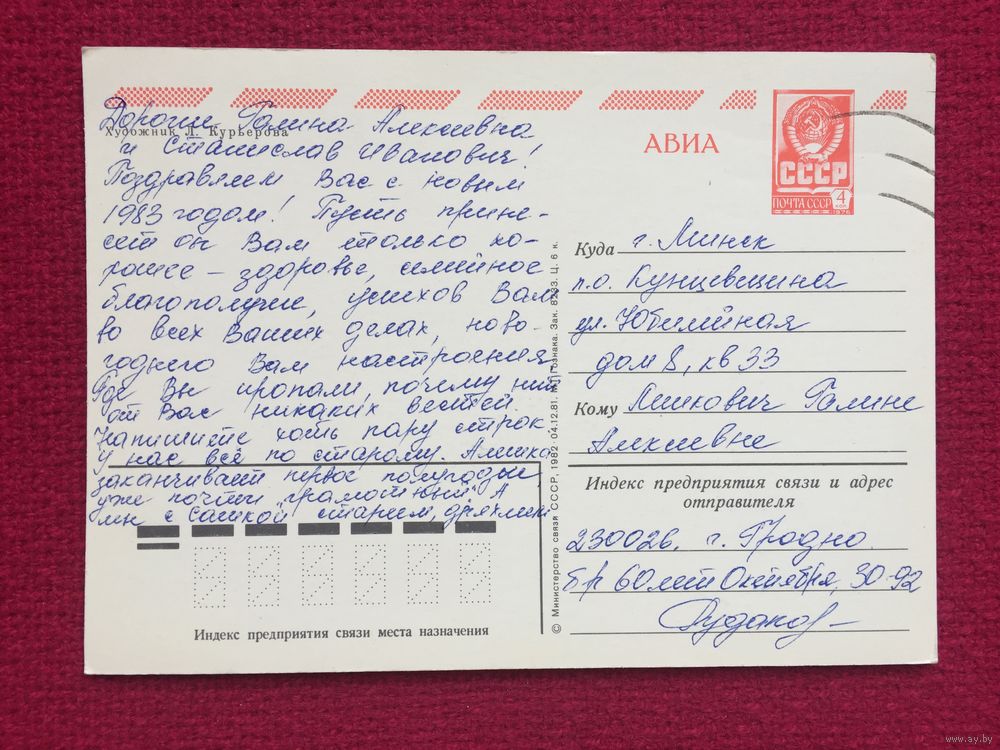 Дорогие Галина Алексеевна
Художник Л. Курьерова
и Станислав Иванович!
Поздравляем Вас с новым
1983 годом! Пусть прине-
сет он Вам только хо-
рошее – здоровье, семейное
благополучие, успехов Вам
во всех Ваших делах, ново-
годнего Вам настроения
Где Вы пропали, почему нет
от Вас никаких вестей.
Напишите хоть пару строк.
У нас всё по старому. Алешка
заканчивает первое полугодие,
уже почти "грамотный". А
мы с Сашкой стареем, дряхлеем
Индекс предприятия связи места назначения
© Министерство связи СССР, 1982 04.12.81. Гознака. Зак. 8233. Ц. 6 к.
АВИА
СССР
ПОЧТА СССР
4
КОП
1978
Куда г. Минск
п.о. Кунцевщина
ул. Юбилейная
дом 8, кв 33
Кому Лешкович Галине
Алексеевне
Индекс предприятия связи и адрес
отправителя
230026. г. Гродно.
бр 60 лет Октября, 30-92
Рудаков
www.ay.by